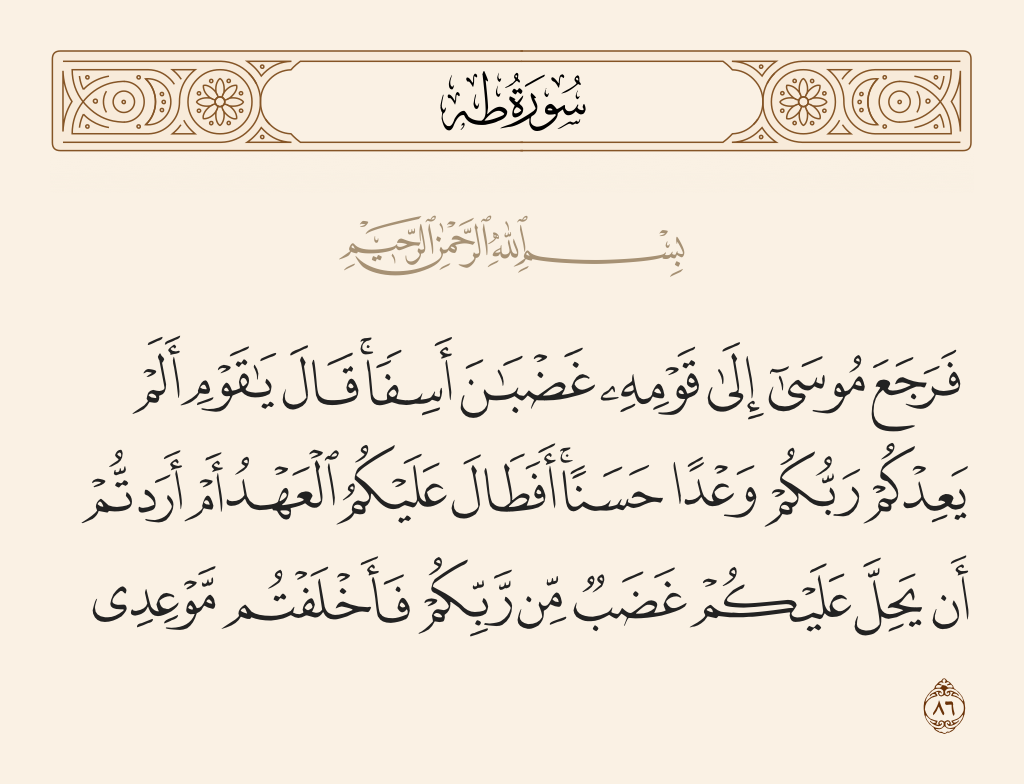 سُورَةُ طه
بِسْمِ ٱللَّهِ ٱلرَّحْمَٰنِ ٱلرَّحِيمِ
فَرَجَعَ مُوسَىٰٓ إِلَىٰ قَوْمِهِۦ غَضْبَٰنَ أَسِفًاۚ قَالَ يَٰقَوْمِ أَلَمْ
يَعِدْكُمْ رَبُّكُمْ وَعْدًا حَسَنًاۚ أَفَطَالَ عَلَيْكُمُ ٱلْعَهْدُ أَمْ أَرَدتُّمْ
أَن يَحِلَّ عَلَيْكُمْ غَضَبٌ مِّن رَّبِّكُمْ فَأَخْلَفْتُم مَّوْعِدِى
٨٦